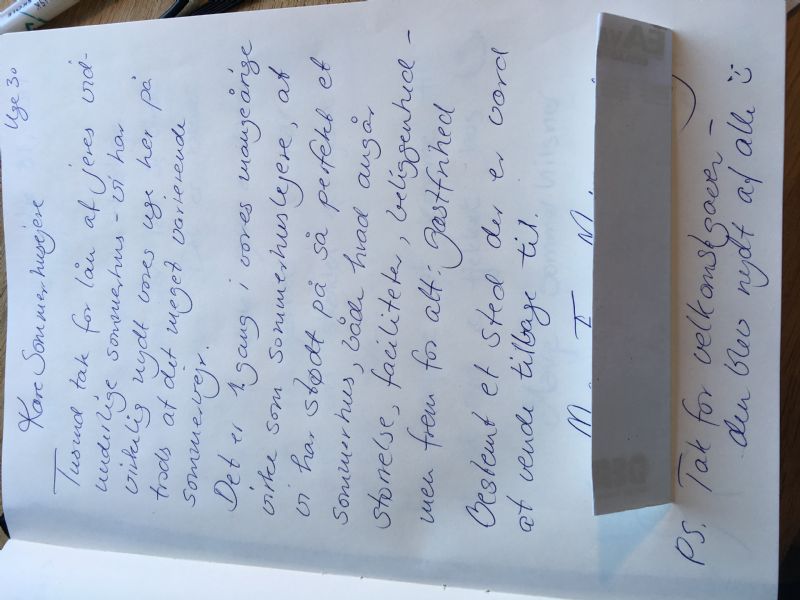 Uge 30
Kære Sommerhusejere
Tusind tak for lån af jeres vid-
underlige sommerhus - vi har
virkelig nydt vores uge her på
trods af det meget varierende
sommervejr.
Det er 1. gang i vores mangeårige
virke som sommerhuslejere, at
vi har stødt på så perfekt et
sommerhus, både hvad angår
størrelse, faciliteter, beliggenhed -
men frem for alt: gæstfrihed
Bestemt et sted der er værd
at vende tilbage til.
PS. Tak for velkomstgaver -
den blev nydt af alle